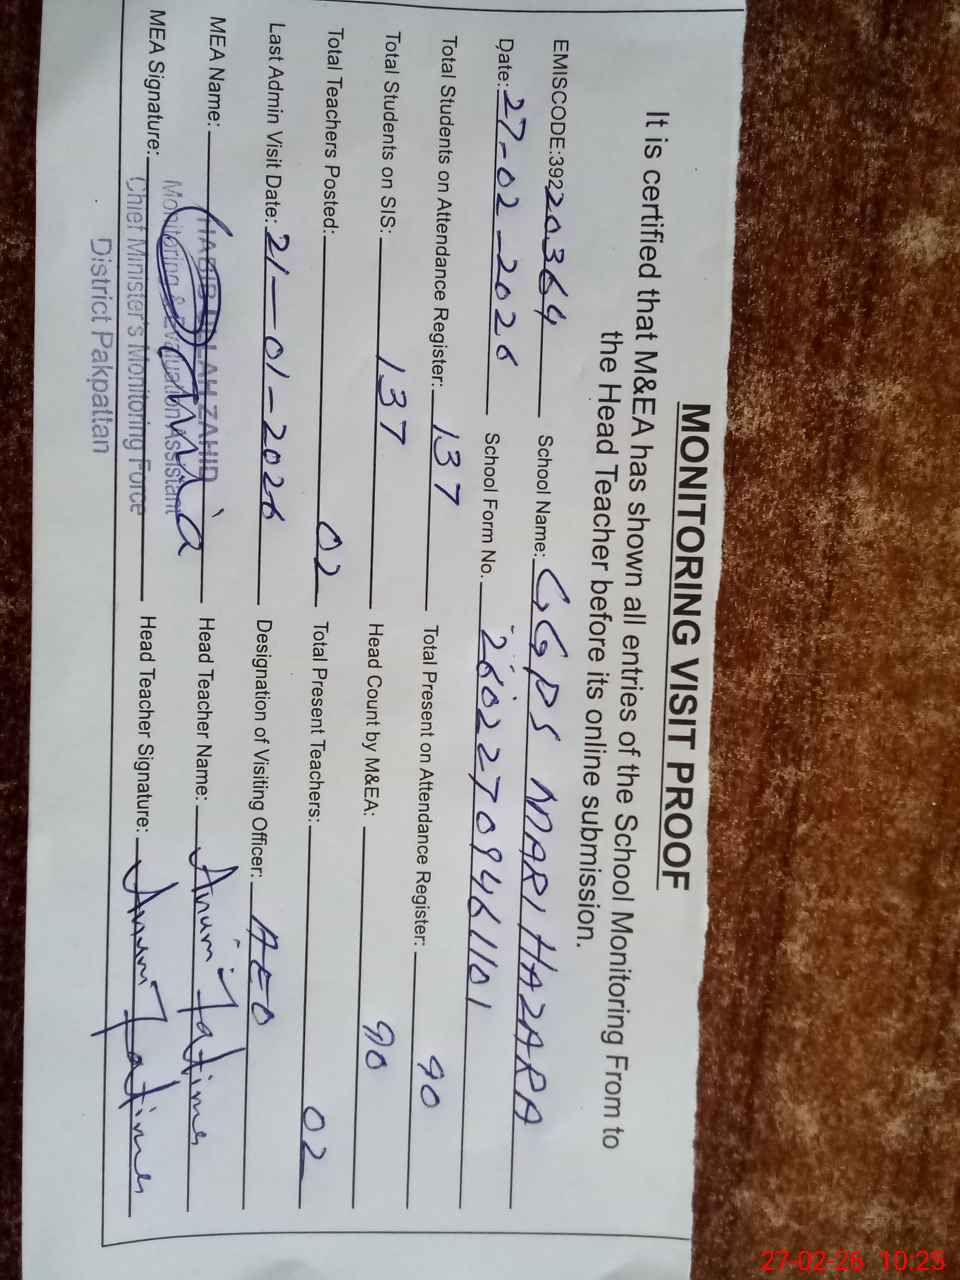 MONITORING VISIT PROOF
It is certified that M&EA has shown all entries of the School Monitoring From to
the Head Teacher before its online submission.
EMISCODE:39220364 School Name: GGPS MARI HAZARA
Date: 27-02-2026 School Form No. 26022709461101
Total Students on Attendance Register: 137 Total Present on Attendance Register: 90
Total Students on SIS: 137 Head Count by M&EA: 90
Total Teachers Posted: 02 Total Present Teachers: 02
Last Admin Visit Date: 21-01-2026 Designation of Visiting Officer: AEO
MEA Name: HABIB ULLAH ZAHID Head Teacher Name: Anum Fatima
Monitoring & Evaluation Assistant
MEA Signature: Chief Minister's Monitoring Force Head Teacher Signature: Anum Fatima
District Pakpattan
27-02-26 10:25